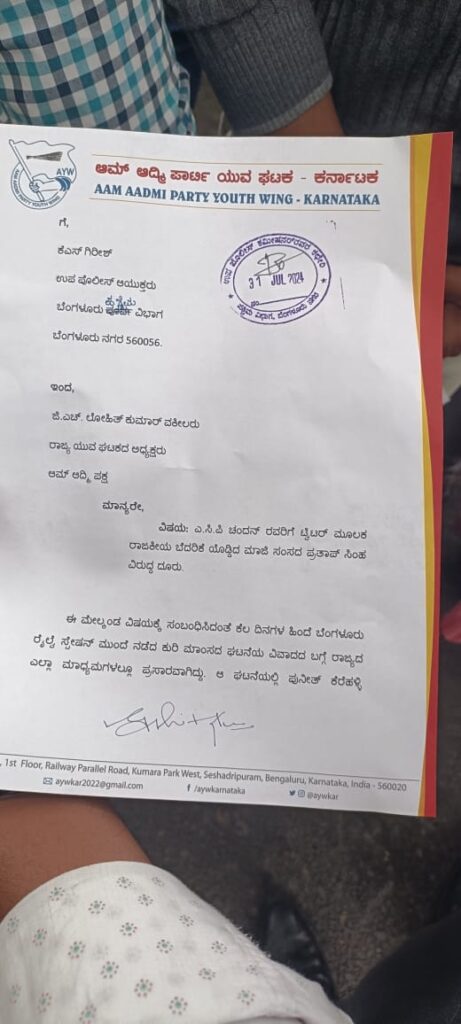 AYW
AAM AADMI PARTY YOUTH WING
ಆಮ್ ಆದ್ಮಿ ಪಾರ್ಟಿ ಯುವ ಘಟಕ - ಕರ್ನಾಟಕ
AAM AADMI PARTY YOUTH WING - KARNATAKA
ಗೆ,
ಕೆಎಸ್ ಗಿರೀಶ್
ಉಪ ಪೊಲೀಸ್ ಆಯುಕ್ತರು
ಬೆಂಗಳೂರು ವಿಭಾಗ
ಬೆಂಗಳೂರು ನಗರ 560056.
ಉಪ ಪೊಲೀಸ್ ಕಮೀಷನರ್‌ರವರ ಕಛೇರಿ
31 JUL 2024
No.
ಪಶ್ಚಿಮ ವಿಭಾಗ, ಬೆಂಗಳೂರು ನಗರ
ಇಂದ,
ಜಿ.ಎಚ್. ಲೋಹಿತ್ ಕುಮಾರ್ ವಕೀಲರು
ರಾಜ್ಯ ಯುವ ಘಟಕದ ಅಧ್ಯಕ್ಷರು
ಆಮ್ ಆದ್ಮಿ ಪಕ್ಷ
ಮಾನ್ಯರೇ,
ವಿಷಯ: ಎ.ಸಿ.ಪಿ ಚಂದನ್ ರವರಿಗೆ ಟ್ವಿಟರ್ ಮೂಲಕ
ರಾಜಕೀಯ ಬೆದರಿಕೆ ಯೊಡ್ಡಿದ ಮಾಜಿ ಸಂಸದ ಪ್ರತಾಪ್ ಸಿಂಹ
ವಿರುದ್ಧ ದೂರು.
ಈ ಮೇಲ್ಕಂಡ ವಿಷಯಕ್ಕೆ ಸಂಬಂಧಿಸಿದಂತೆ ಕೆಲ ದಿನಗಳ ಹಿಂದೆ ಬೆಂಗಳೂರು
ರೈಲ್ವೆ ಸ್ಟೇಷನ್ ಮುಂದೆ ನಡೆದ ಕುರಿ ಮಾಂಸದ ಘಟನೆಯ ವಿವಾದದ ಬಗ್ಗೆ ರಾಜ್ಯದ
ಎಲ್ಲಾ ಮಾಧ್ಯಮಗಳಲ್ಲೂ ಪ್ರಸಾರವಾಗಿದ್ದು. ಆ ಘಟನೆಯಲ್ಲಿ ಪುನೀತ್ ಕೆರೆಹಳ್ಳಿ
, 1st Floor, Railway Parallel Road, Kumara Park West, Seshadripuram, Bengaluru, Karnataka, India - 560020
aywkar2022@gmail.com /aywkarnataka @aywkar